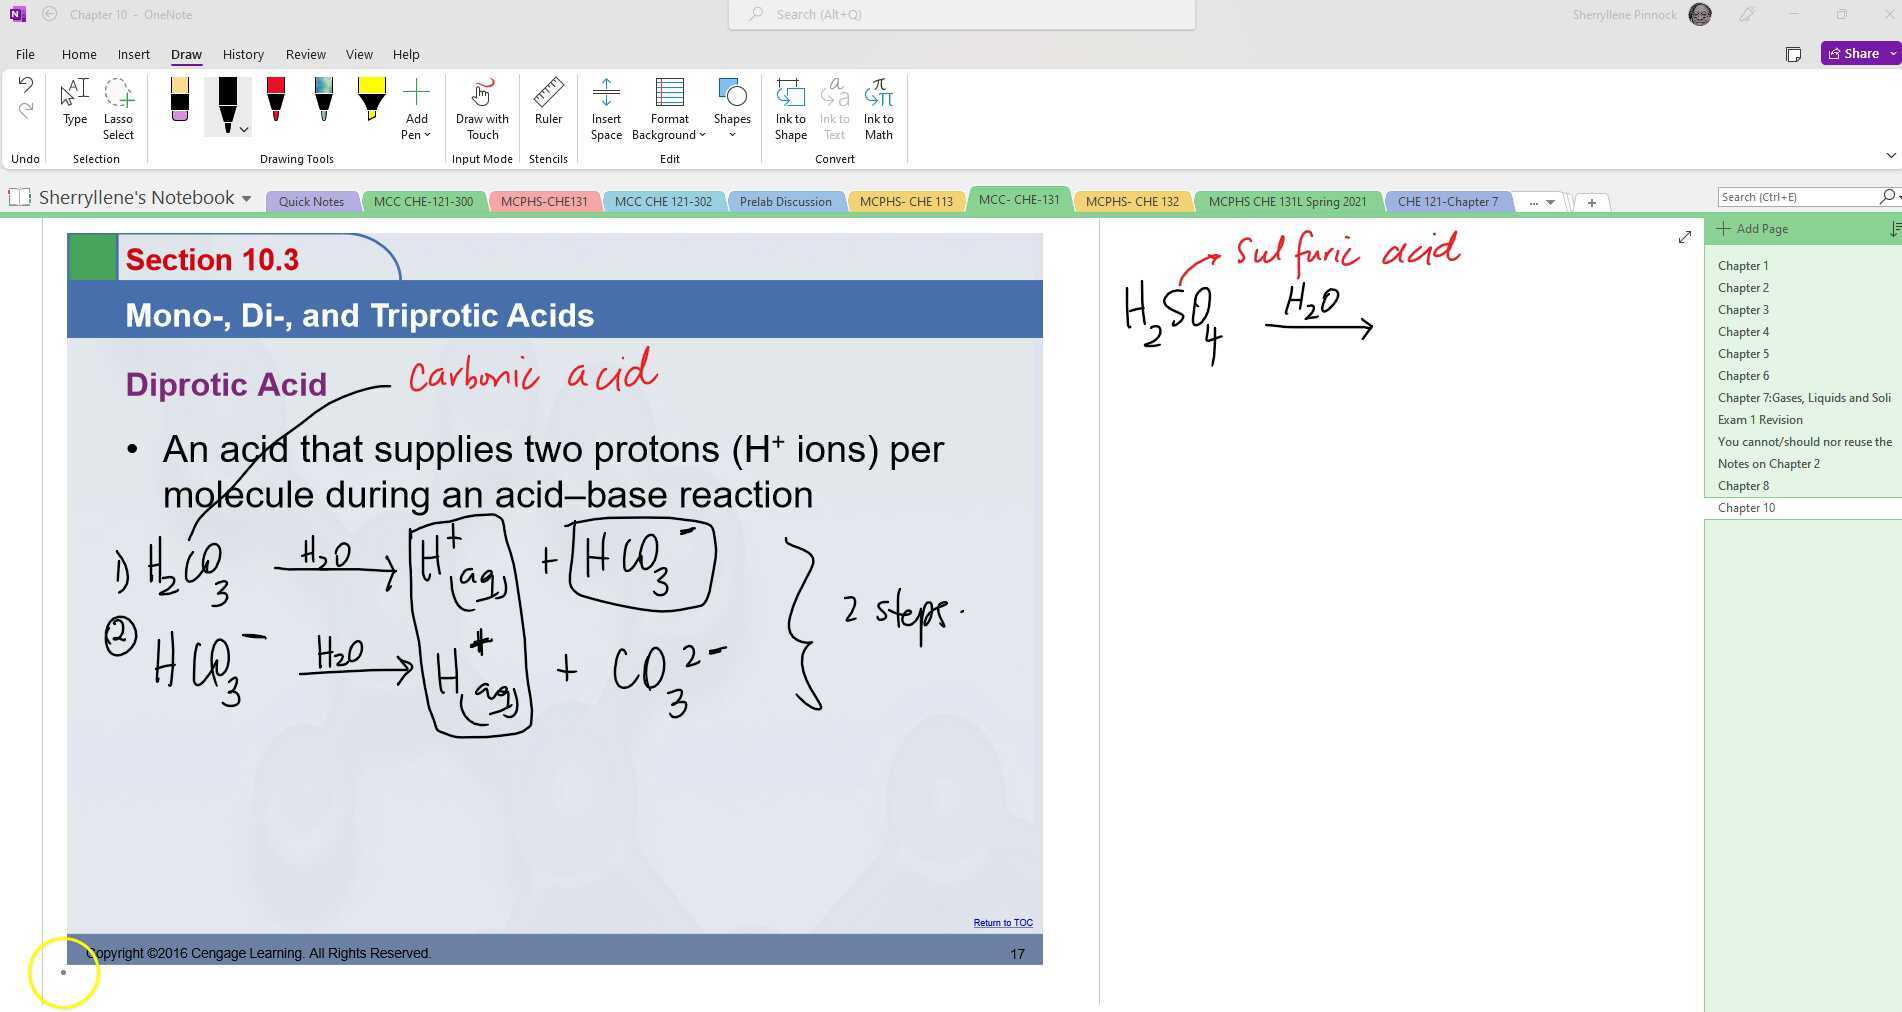 Chapter 10 - OneNote
Search (Alt+Q)
Sherryllene Pinnock
File Home Insert Draw History Review View Help
Share
Type
Lasso Select
Add Pen
Draw with Touch
Ruler
Insert Space
Format Background
Shapes
Ink to Shape
Ink to Text
Ink to Math
Undo Selection Drawing Tools Input Mode Stencils Edit Convert
Sherryllene's Notebook
Quick Notes
MCC CHE-121-300
MCPHS-CHE131
MCC CHE 121-302
Prelab Discussion
MCPHS- CHE 113
MCC- CHE-131
MCPHS- CHE 132
MCPHS CHE 131L Spring 2021
CHE 121-Chapter 7
...
Search (Ctrl+E)
Section 10.3
Mono-, Di-, and Triprotic Acids
Diprotic Acid
carbonic acid
• An acid that supplies two protons (H⁺ ions) per
molecule during an acid–base reaction
1) H₂CO₃ H₂O → H⁺(aq) + HCO₃⁻
② HCO₃⁻ H₂O → H⁺(aq) + CO₃²⁻
2 steps.
Return to TOC
Copyright ©2016 Cengage Learning. All Rights Reserved.
17
sulfuric acid
H₂SO₄ H₂O →
Add Page
Chapter 1
Chapter 2
Chapter 3
Chapter 4
Chapter 5
Chapter 6
Chapter 7:Gases, Liquids and Soli
Exam 1 Revision
You cannot/should nor reuse the
Notes on Chapter 2
Chapter 8
Chapter 10